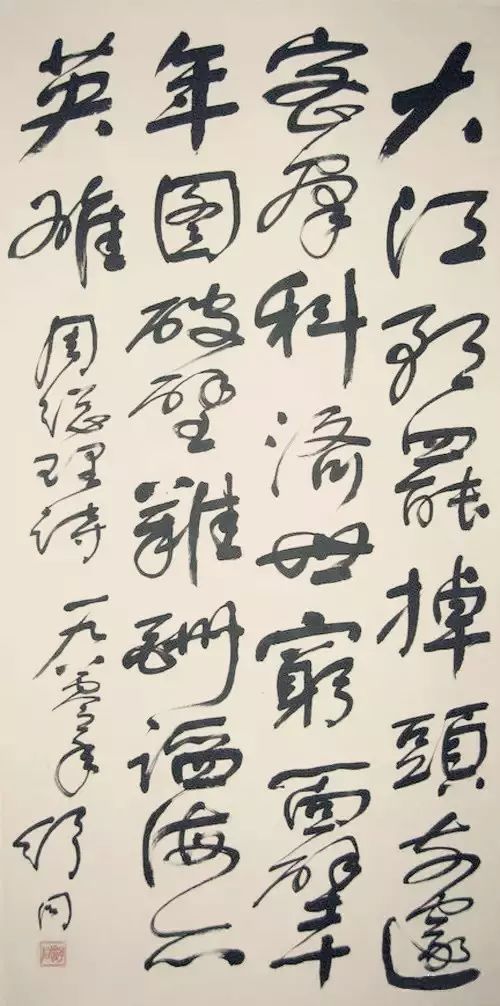 大江歌罷掉頭东邃
密群科济世窮面壁十
年图破壁難酬蹈海亦
英雄 周総理詩 一九八零年 舒同